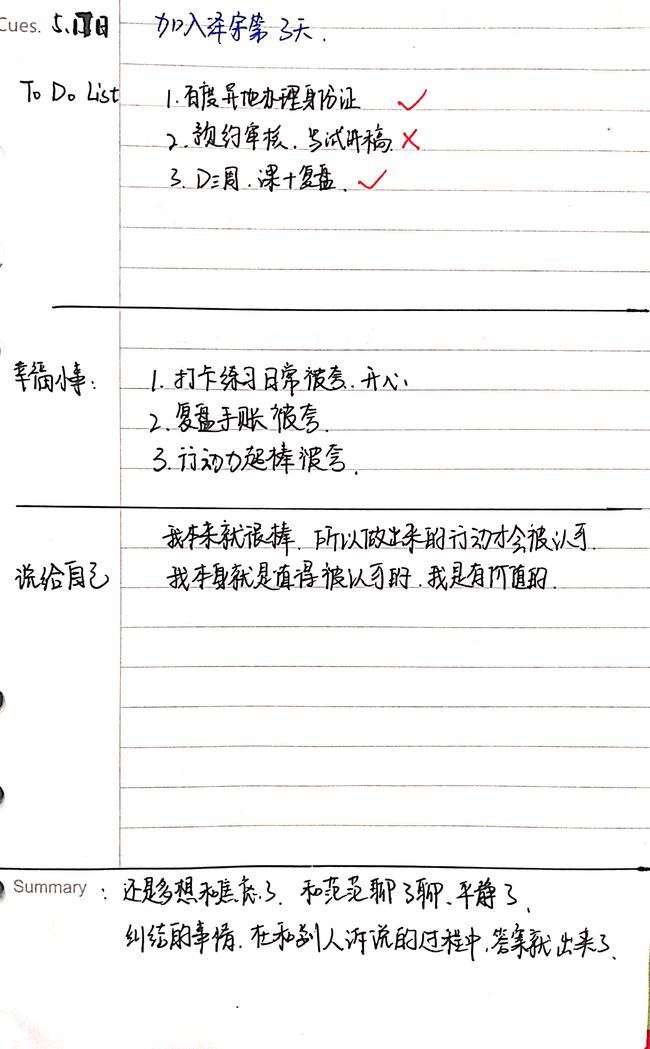 Cues. 5.17日 加入泽宇第3天.
To Do List
1.百度异地办理身份证 ✓
2.预约审核.与试讲稿. ×
3.D三周.课+复盘. ✓
幸福小事:
1.打卡练习日常被夸.开心
2.复盘手账被夸.
3.行动力超棒被夸.
我本来就很棒.所以做出来的行动才会被认可.
说给自己 我本身就是值得被认可的.我是有价值的.
Summary : 还是多想和焦虑了.和范范聊了聊、平静了,
纠结的事情.在和别人诉说的过程中,答案就出来了.